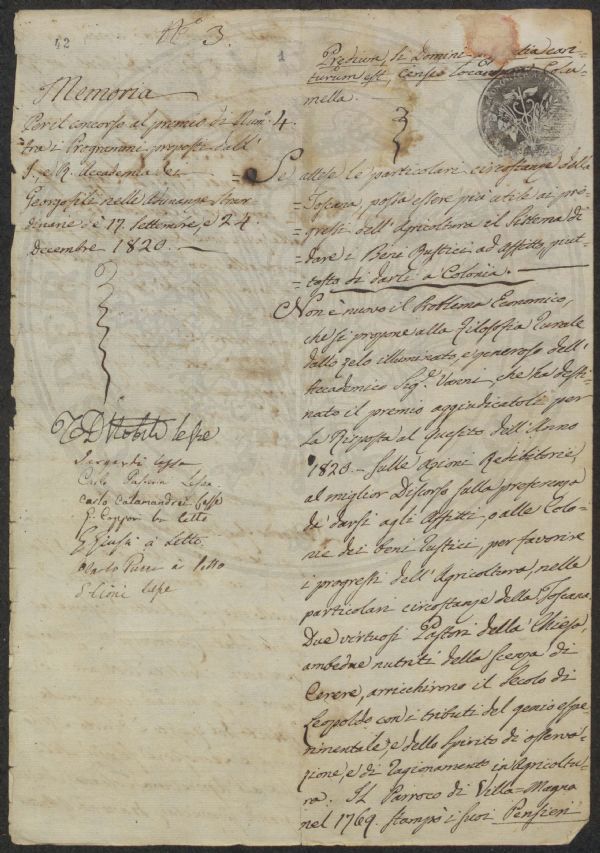 42
N.º 3.
1
Memoria
Per il concorso al premio di Num.º 4.
tra i Programmi proposti dall'
I., e R. Accademia dei
Georgofili nelle Adunanze Straor
dinarie de' 17. Settembre, e 24.
Decembre 1820. —
D Nobili lesse
lesse
Carlo Lessi
Carlo Calamandrei lesse
G. Capponi ho letto
G Giusti à Letto
Carlo à letto
lesse
Predium, si Domini
turum est, censeo locandum. Colu-
mella.
Se attese le particolari circostanze della
= Toscana, possa essere più utile ai pro-
= gressi dell'Agricoltura il Sistema di
= dare i Beni Rustici ad Affitto, piut-
tosto di darli a Colonìa. —
Non è nuovo il Problema Economico,
che si propone alla Filosofia Rurale
dallo zelo illuminato, e generoso dell'
Accademico Sig.r Vanni, che ha desti-
nato il premio aggiudicatoli per
la Risposta al Quesito dell'Anno
1820. - Sulle Azioni Redibitorie,
al miglior Discorso sulla preferenza
da darsi agli Affitti, o alle Colo-
nie dei beni rustici, per favorire
i progressi dell'Agricoltura, nelle
particolari circostanze della Toscana.
Due virtuosi Pastori della Chiesa,
ambedue nutriti della scenza di
Cerere, arricchirono il Secolo di
Leopoldo con i tributi del genio espe-
rimentale, e dello Spirito di osserva-
zione, e di ragionamento in Agricoltu-
ra. Il Parroco di Villa-Magna
nel 1769. stampò i suoi Pensieri